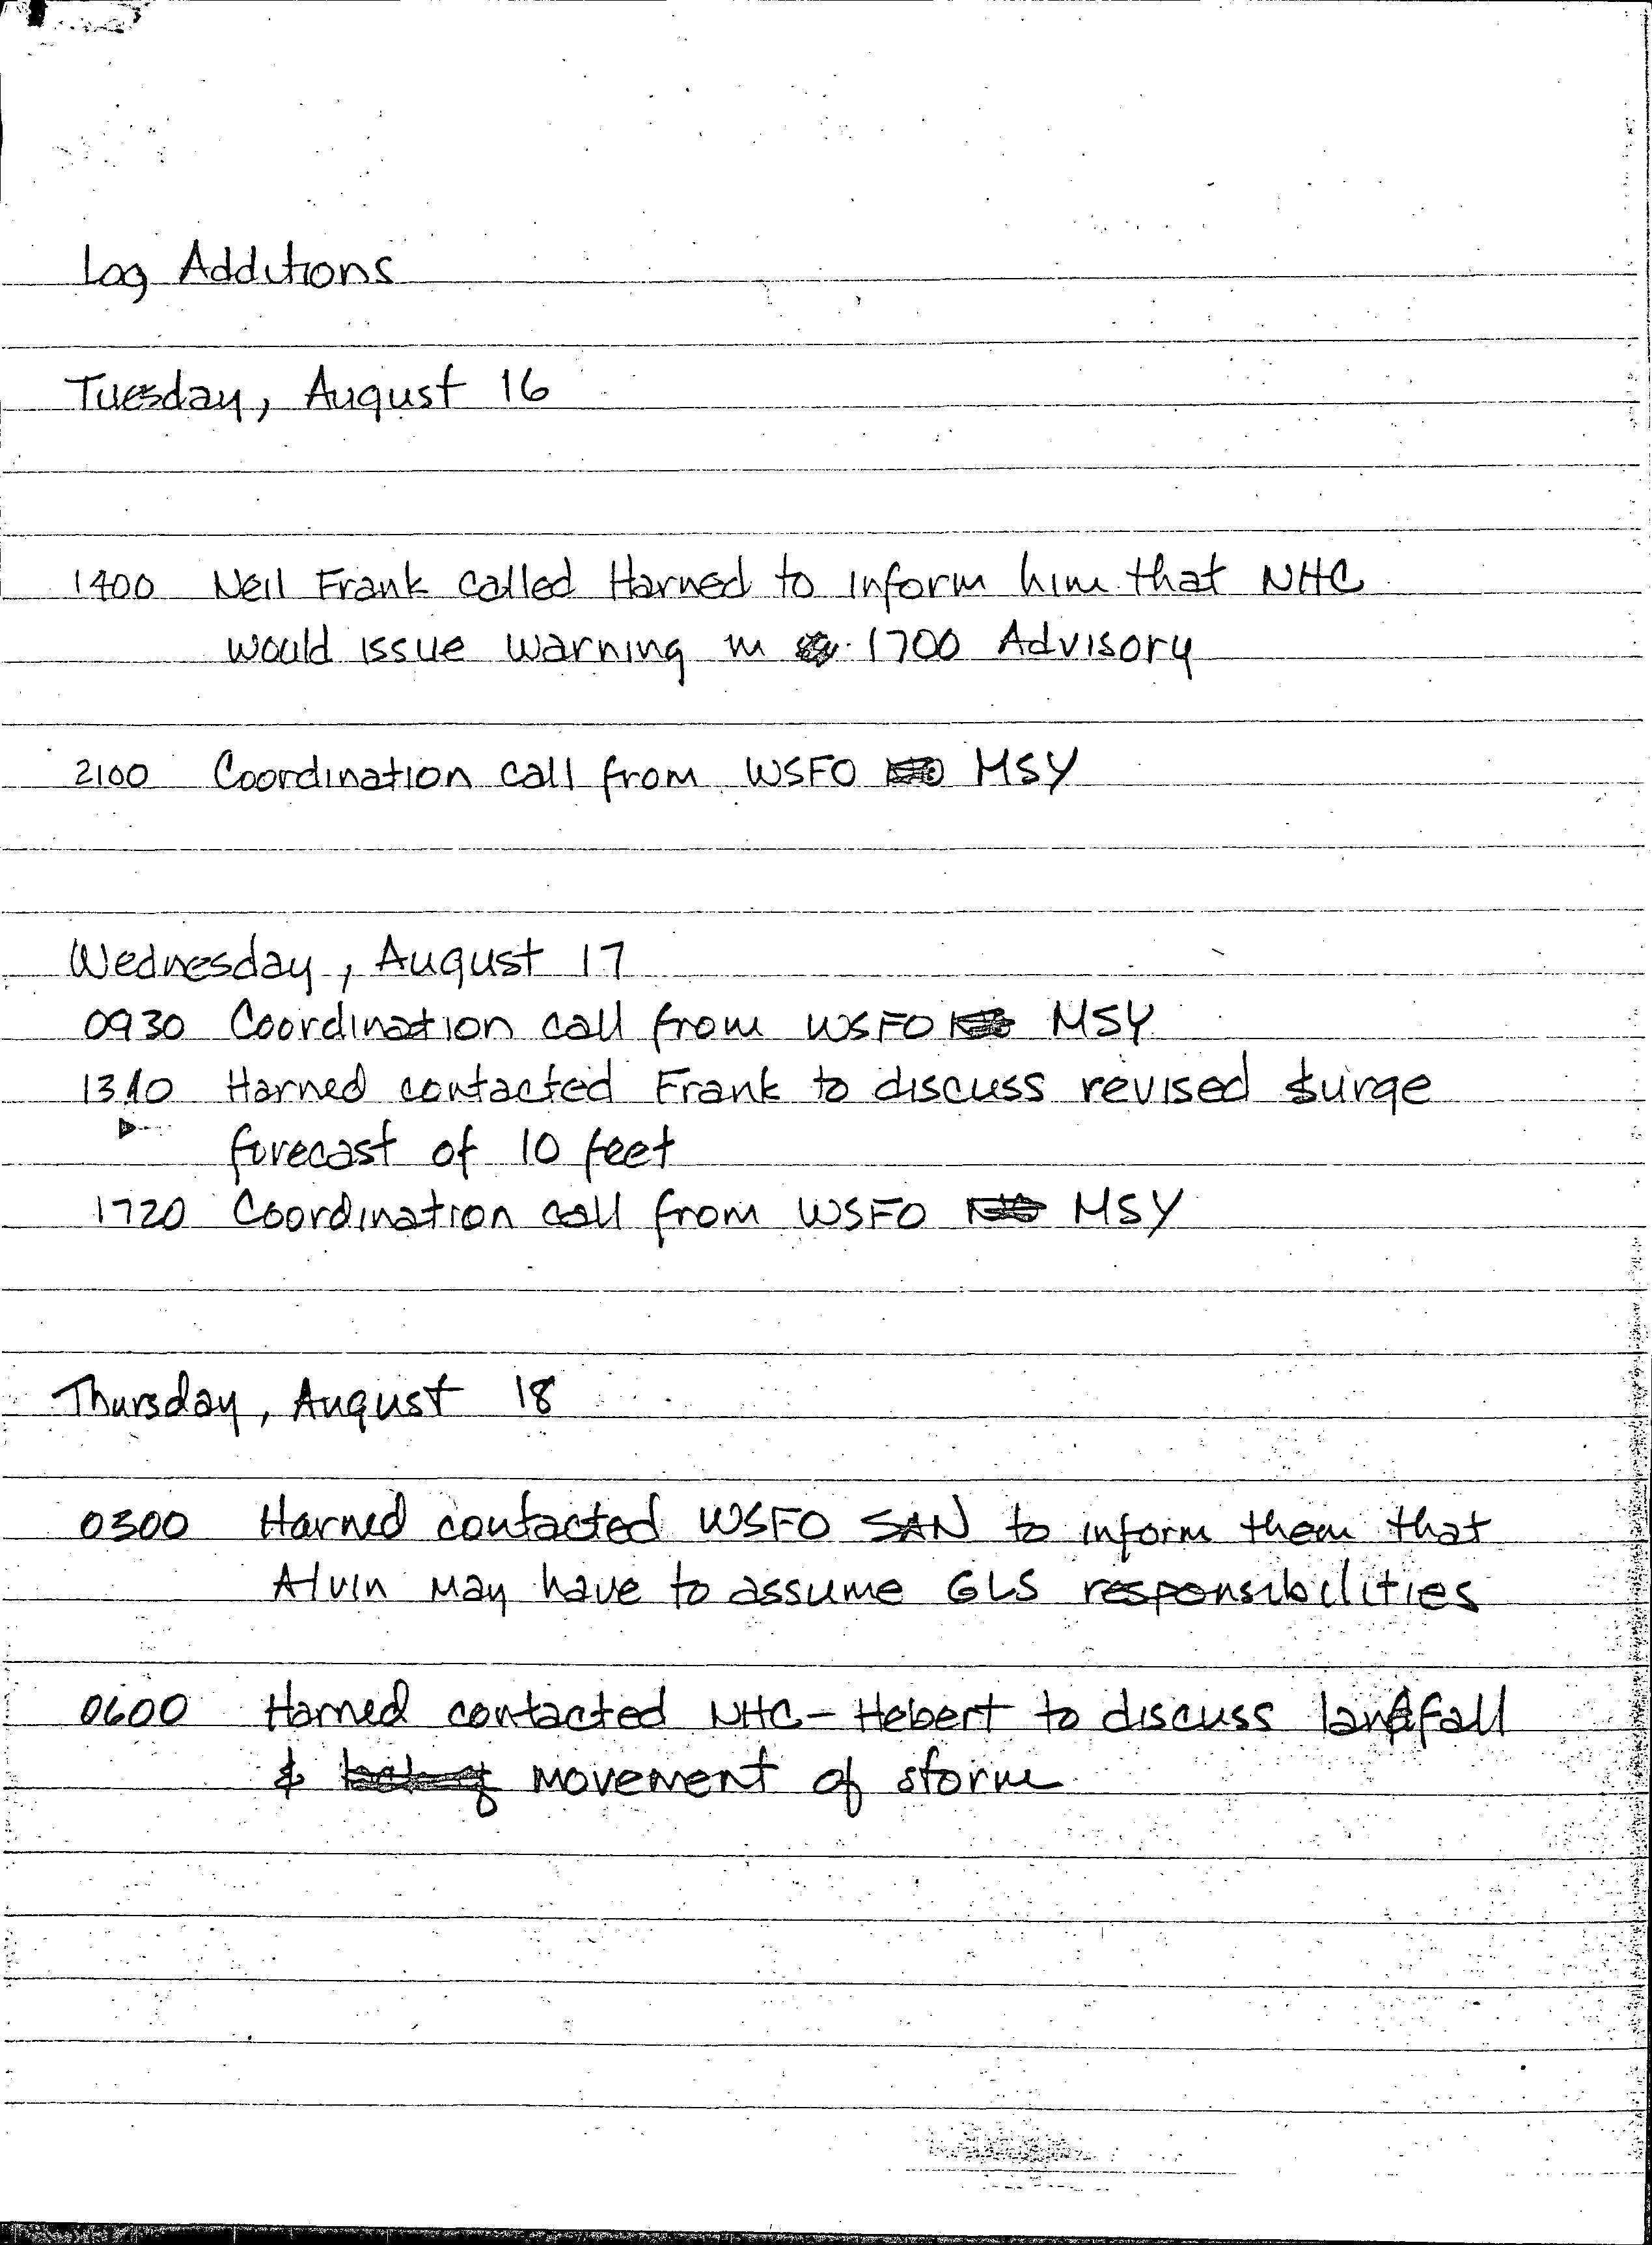 Log Additions
Tuesday, August 16
1400 Neil Frank called Harned to inform him that NHC
would issue warning in 1700 Advisory
2100 Coordination call from WSFO MSY
Wednesday, August 17
0930 Coordination call from WSFO MSY
1310 Harned contacted Frank to discuss revised surge
forecast of 10 feet
1720 Coordination call from WSFO MSY
Thursday, August 18
0300 Harned contacted WSFO SAN to inform them that
Alvin may have to assume GLS responsibilities
0600 Harned contacted NHC - Hebert to discuss landfall
& movement of storm